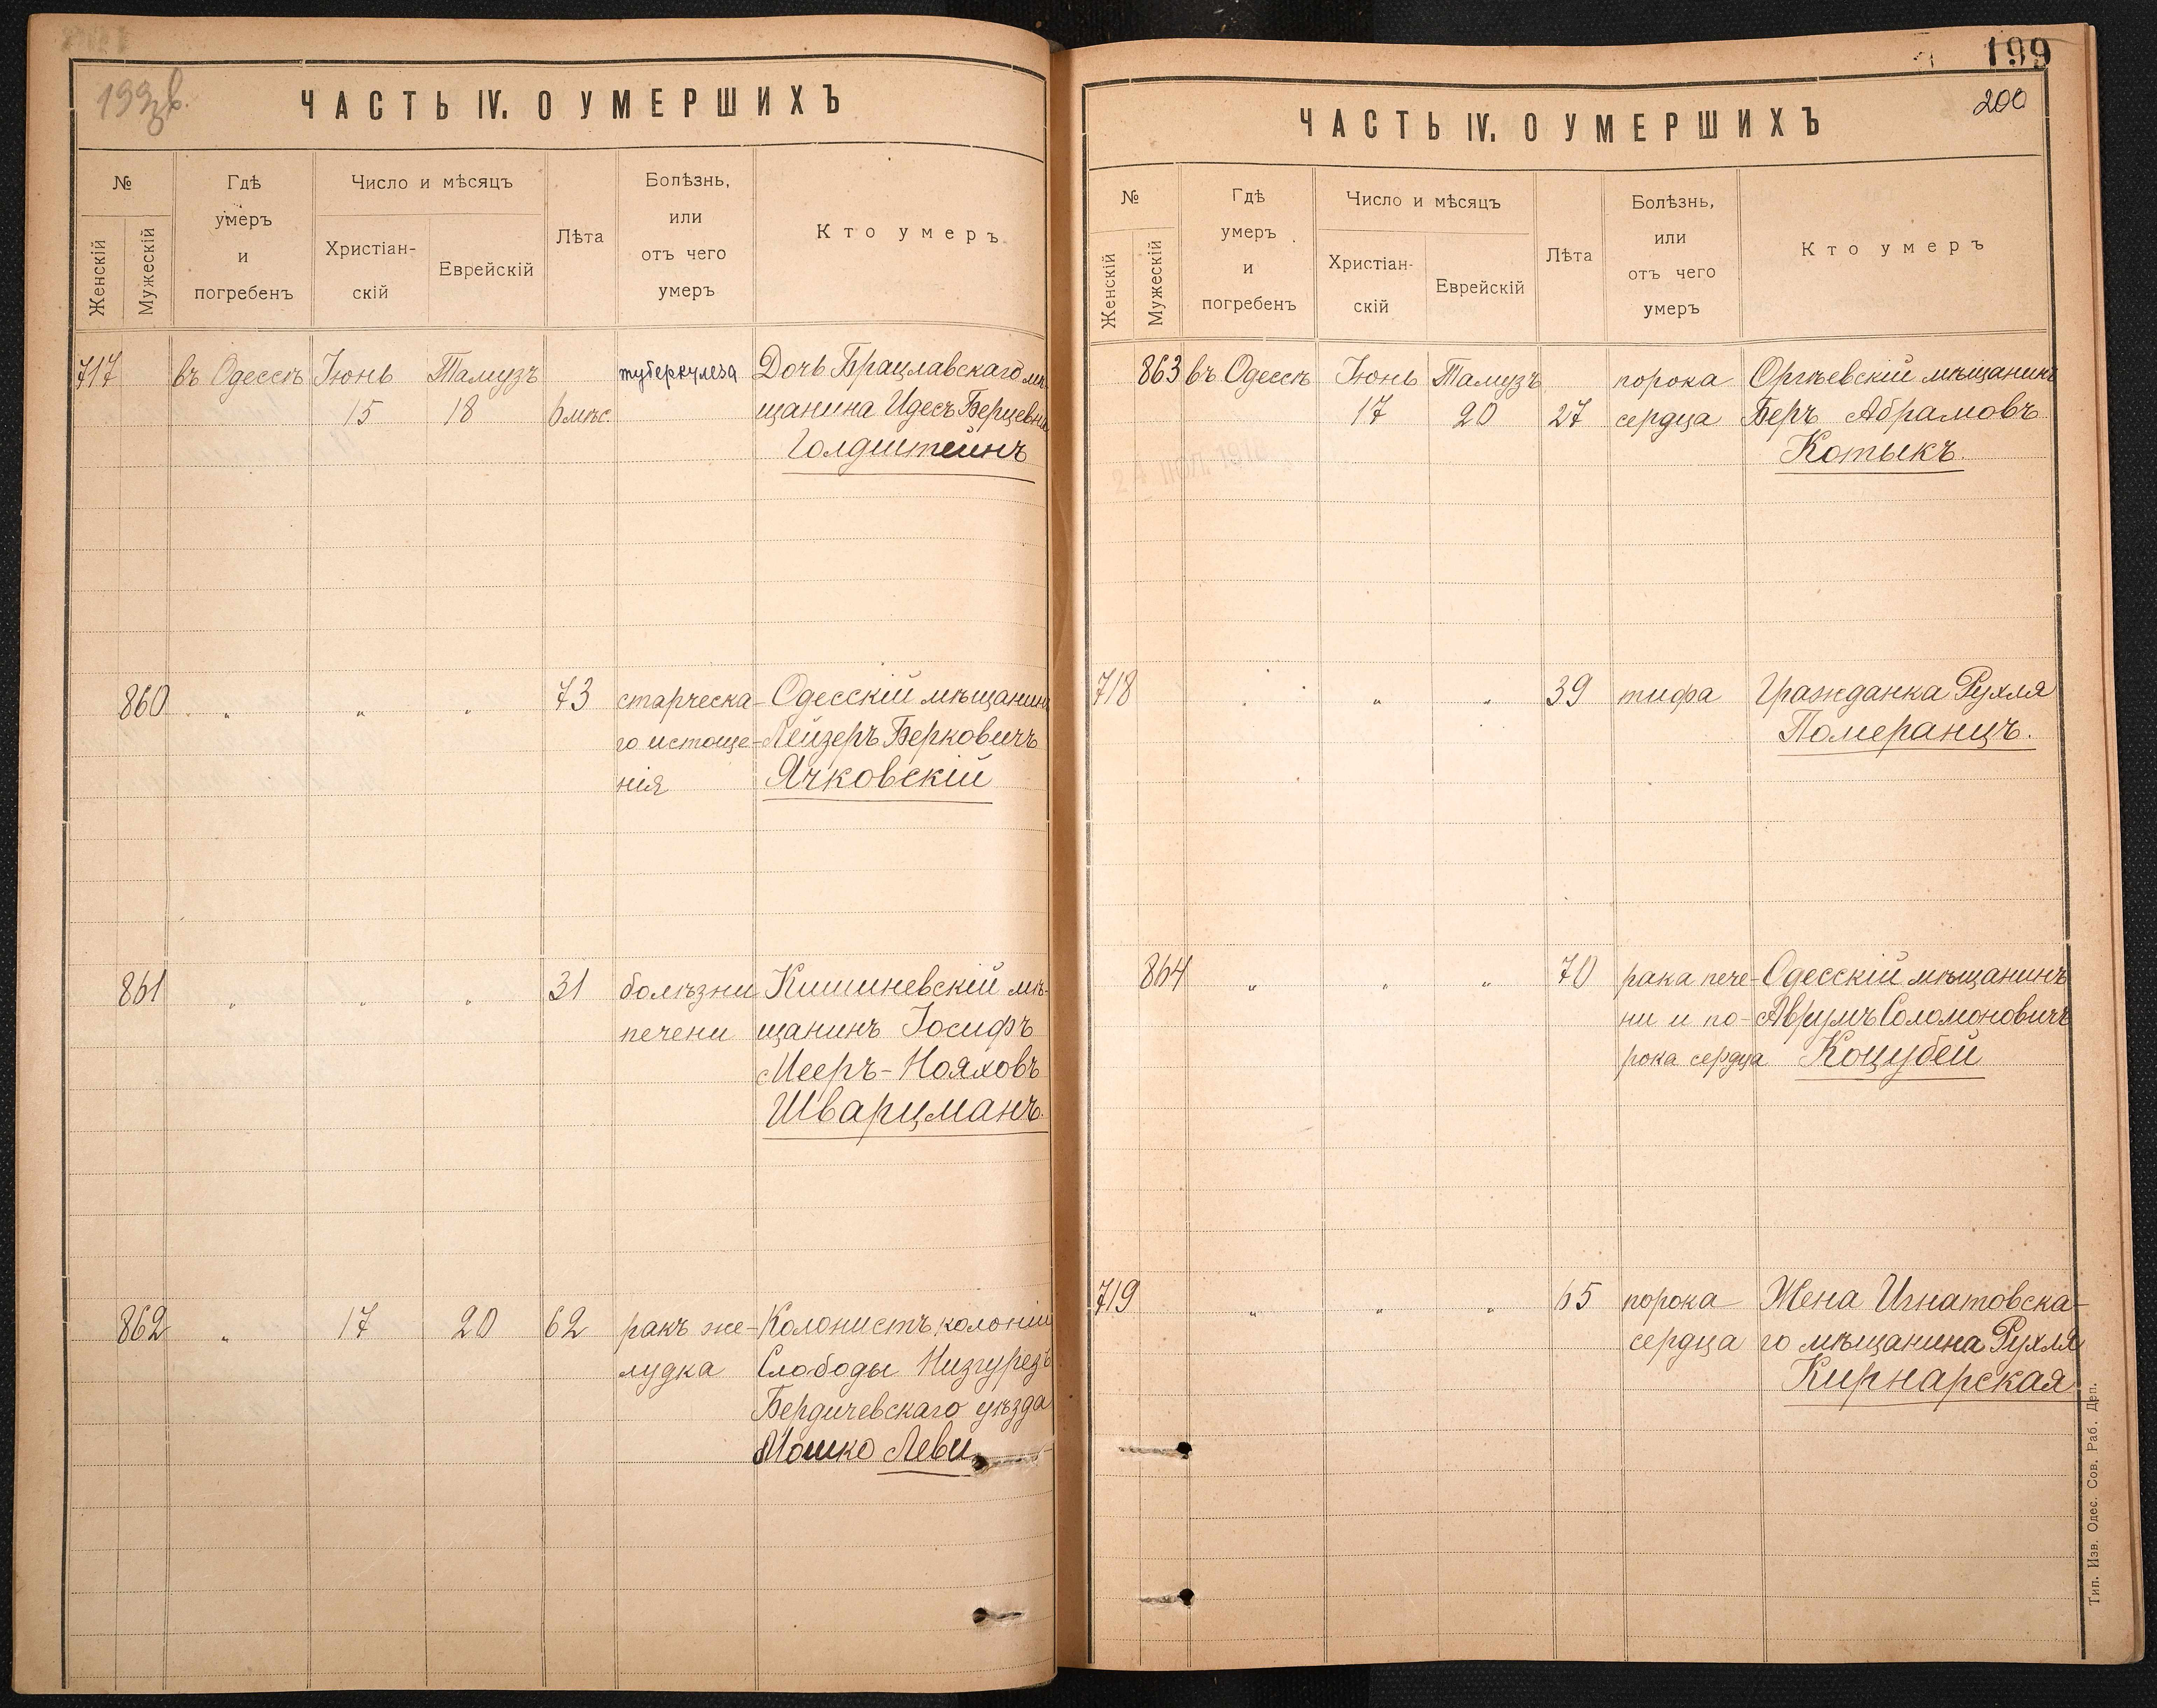 ЧАСТЬ IV. О УМЕРШИХЪ
№
Женскій
Мужескій
Гдѣ
умеръ
и
погребенъ
Число и мѣсяцъ
Христіан-
скій
Еврейскій
Лѣта
Болѣзнь,
или
отъ чего
умеръ
Кто умеръ
717 въ Одессѣ Іюнь Тамузъ туберкулеза Дочь Брацлавскаго мѣ-
15 18 6 мѣс. щанина Идесъ Берцевна
Голдштейнъ
860 „ „ „ 73 старческа- Одесскій мѣщанинъ
го истоще- Лейзеръ Берковичъ
нія Ячковскій
861 „ „ „ 31 болѣзни Кишиневскій мѣ-
печени щанинъ Іосифъ
Мееръ-Нояховъ
Шварцманъ.
862 „ 17 20 62 ракъ же- Колонистъ колоніи
лудка Слободы Низгурезъ
Бердичевскаго уѣзда
Мошко Леви
199
200
ЧАСТЬ IV. О УМЕРШИХЪ
№
Женскій
Мужескій
Гдѣ
умеръ
и
погребенъ
Число и мѣсяцъ
Христіан-
скій
Еврейскій
Лѣта
Болѣзнь,
или
отъ чего
умеръ
Кто умеръ
863 въ Одессѣ Іюнь Тамузъ порока Оргѣевскій мѣщанинъ
17 20 27 сердца Беръ Абрамовъ
Котыкъ.
718 „ „ „ 39 тифа Гражданка Рухля
Померанцъ.
864 „ „ „ 70 рака пече- Одесскій мѣщанинъ
ни и по- Аврумъ Соломоновичъ
рока сердца Коцубей
719 „ „ „ 65 порока Жена Игнатовска-
сердца го мѣщанина Рухля
Кирнарская
Тип. Изв. Одес. Сов. Раб. Деп.